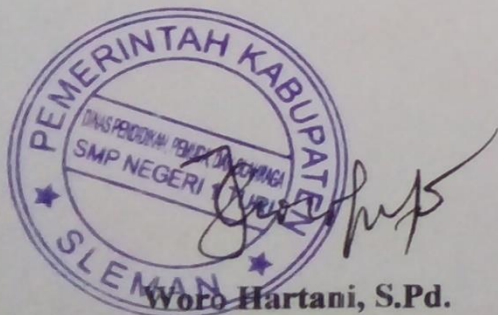 PEMERINTAH KABUPATEN
DINAS PENDIDIKAN, PEMUDA, DAN OLAHRAGA
SMP NEGERI 1
SLEMAN
Woro Hartani, S.Pd.